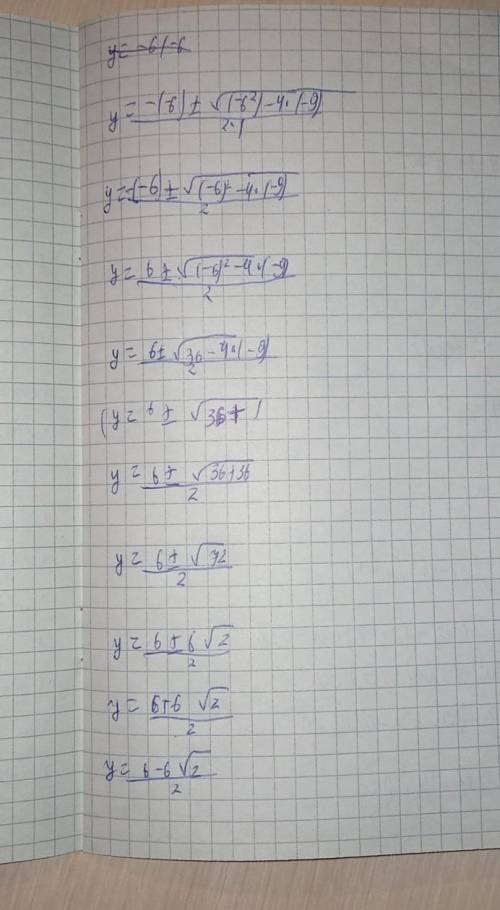 y = -(-6) ± √(-6²) - 4 · (-9) / 2·1
y = -(-6) ± √(-6)² - 4 · (-9) / 2
y = 6 ± √(-6)² - 4 · (-9) / 2
y = 6 ± √36 - 4 · (-9) / 2
y = 6 ± √36+36 / 2
y = 6 ± √72 / 2
y = 6 ± 6 √2 / 2
y = 6+6 √2 / 2
y = 6-6 √2 / 2